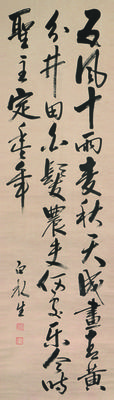 五風十雨麦秋天成畫青黄
分井田白髮農夫何樂今時
聖主定年